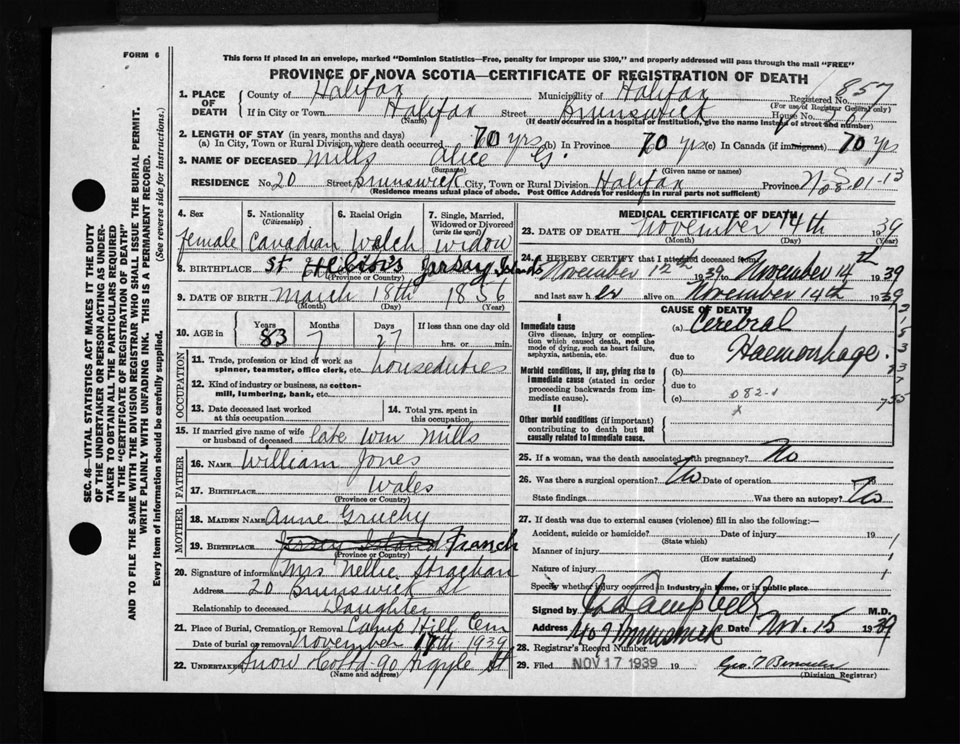 FORM 6
This form if placed in an envelope, marked "Dominion Statistics—Free, penalty for improper use $300," and properly addressed will pass through the mail "FREE"
PROVINCE OF NOVA SCOTIA—CERTIFICATE OF REGISTRATION OF DEATH
SEC. 46—VITAL STATISTICS ACT MAKES IT THE DUTY
OF THE UNDERTAKER OR PERSON ACTING AS UNDER-
TAKER TO OBTAIN ALL THE PARTICULARS REQUIRED
IN THE "CERTIFICATE OF REGISTRATION OF DEATH"
AND TO FILE THE SAME WITH THE DIVISION REGISTRAR WHO SHALL ISSUE THE BURIAL PERMIT.
WRITE PLAINLY WITH UNFADING INK. THIS IS A PERMANENT RECORD.
Every item of information should be carefully supplied. (See reverse side for instructions.)
1. PLACE OF DEATH County of Halifax Municipality of Halifax Registered No. 857
(For use of Registrar General only)
If in City or Town Halifax Street Brunswick House No. 20
(Name) (If death occurred in a hospital or institution, give the name instead of street and number)
2. LENGTH OF STAY (in years, months and days)
(a) In City, Town or Rural Division where death occurred 70 yrs (b) In Province 70 yrs (c) In Canada (if immigrant) 70 yrs
3. NAME OF DECEASED Mills Alice G.
(Surname) (Given name or names)
RESIDENCE No. 20 Street Brunswick City, Town or Rural Division Halifax Province N.S. 01-13
(Residence means usual place of abode. Post Office Address for residents in rural parts not sufficient)
4. Sex female
5. Nationality (Citizenship) Canadian
6. Racial Origin Welch
7. Single, Married, Widowed or Divorced (write the word) widow
8. BIRTHPLACE St Jarsay Islands
(Province or Country)
9. DATE OF BIRTH March 18th 1856
(Month) (Day) (Year)
10. AGE in Years 83 Months 7 Days 27 If less than one day old
hrs. or min.
OCCUPATION
11. Trade, profession or kind of work as spinner, teamster, office clerk, etc. houseduties
12. Kind of industry or business, as cotton-mill, lumbering, bank, etc.
13. Date deceased last worked at this occupation
14. Total yrs. spent in this occupation
15. If married give name of wife or husband of deceased late Wm Mills
FATHER
16. NAME William Jones
17. BIRTHPLACE Wales
(Province or Country)
MOTHER
18. MAIDEN NAME Anne Gruchy
19. BIRTHPLACE Jersey Island French
(Province or Country)
20. Signature of informant Mrs Nellie Strachan
Address 20 Brunswick St
Relationship to deceased Daughter
21. Place of Burial, Cremation or Removal Camp Hill Cem
Date of burial or removal November 17th 1939
22. UNDERTAKER Snow & Co Ltd 90 Argyle St
(Name and address)
MEDICAL CERTIFICATE OF DEATH
23. DATE OF DEATH November 14th 1939
(Month) (Day) (Year)
24. I HEREBY CERTIFY that I attended deceased from
November 12th 1939 to November 14th 1939
and last saw her alive on November 14th 1939
CAUSE OF DEATH
I
Immediate cause
Give disease, injury or complication which caused death, not the mode of dying, such as heart failure, asphyxia, asthenia, etc.
(a) Cerebral
due to Haemorrhage.
Morbid conditions, if any, giving rise to immediate cause (stated in order proceeding backwards from immediate cause).
(b)
due to
(c) 082-1
x
II
Other morbid conditions (if important) contributing to death but not causally related to immediate cause.
25. If a woman, was the death associated with pregnancy? No
26. Was there a surgical operation? No Date of operation
State findings Was there an autopsy? No
27. If death was due to external causes (violence) fill in also the following:—
Accident, suicide or homicide? Date of injury 19
(State which)
Manner of injury
(How sustained)
Nature of injury
Specify whether injury occurred in industry, in home, or in public place
Signed by Campbell M.D.
Address 407 Brunswick Date Nov. 15 1939
28. Registrar's Record Number
29. Filed NOV 17 1939 19
(Division Registrar)